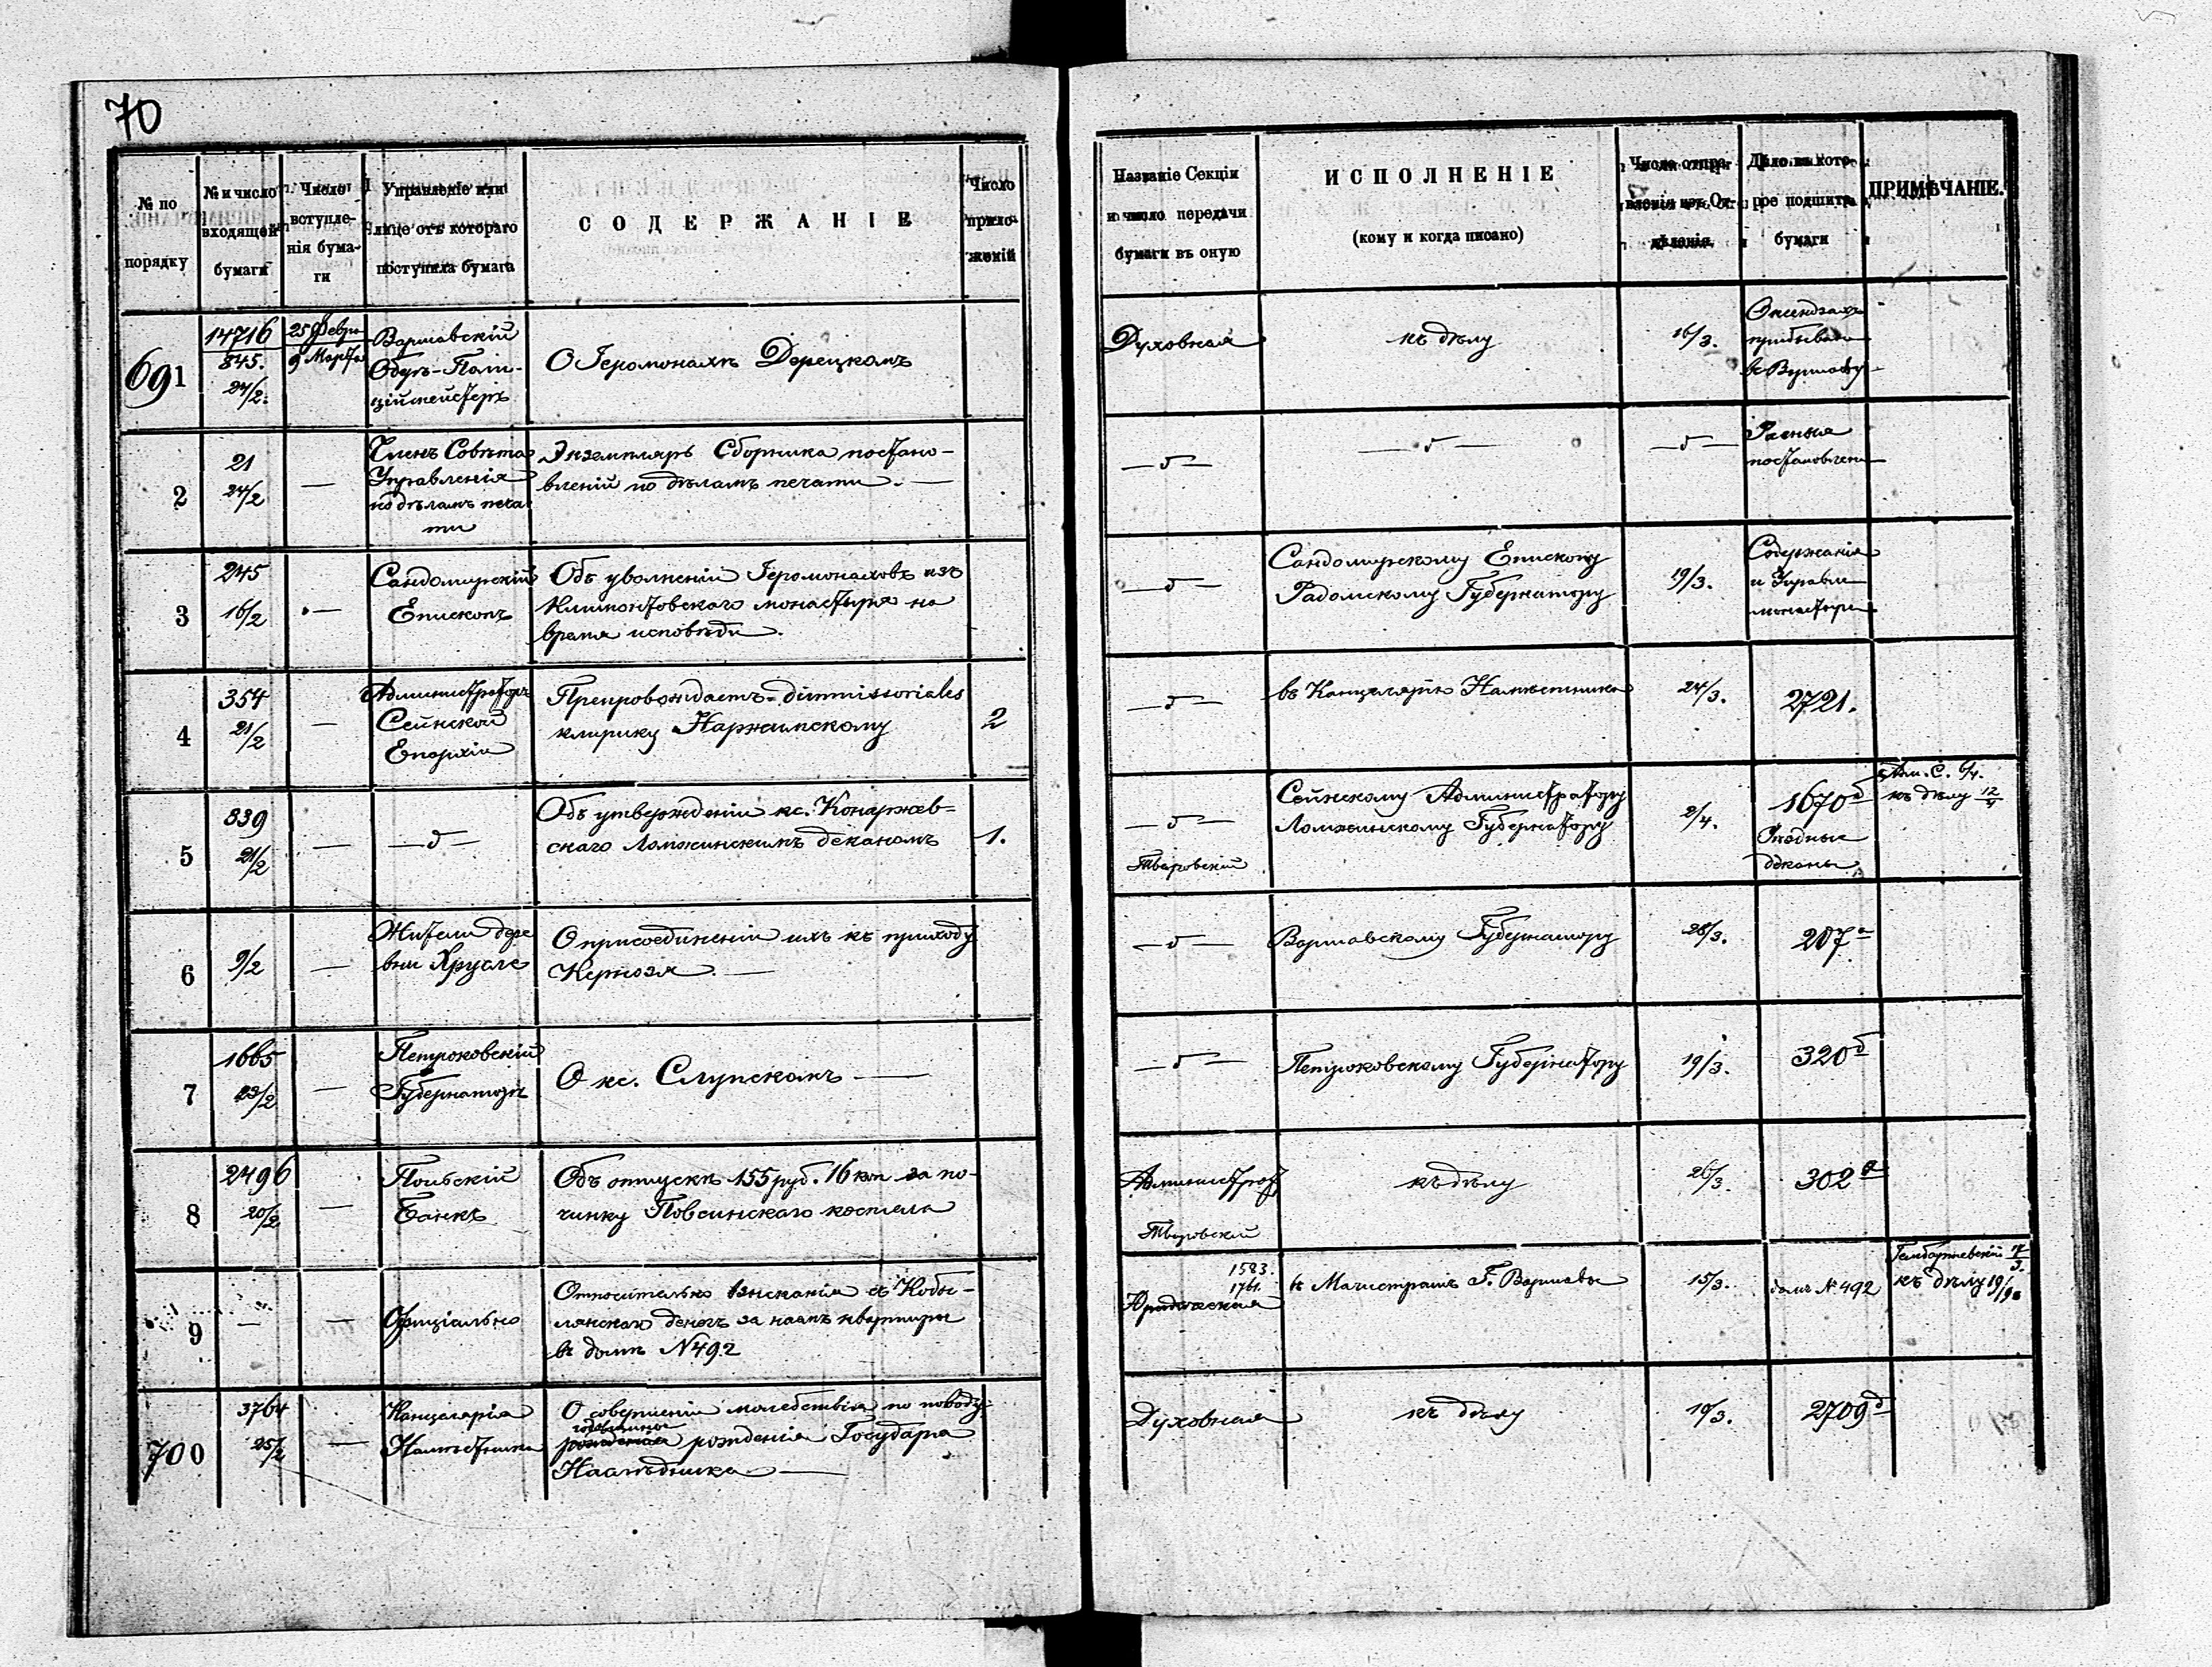 70
№ по порядку
№ и число входящей бумаги
Число вступле-
нія бума-
ги
Управленіе или
лице отъ котораго
поступила бумага
СОДЕРЖАНІЕ
Число
прило-
женій
Названіе Секціи
и число передачи
бумаги въ оную
ИСПОЛНЕНІЕ
(кому и когда писано)
Число отпра-
вленія изъ От-
дѣленія
Дѣло въ кото-
рое подшита
бумаги
ПРИМѢЧАНІЕ.
691
14716
845.
24/2.
25 Февра
9 Марта
Варшавскій
Оберъ-Поли-
ційместеръ
О Іеромонахѣ Дорецкомъ
Духовная
къ дѣлу
16/3.
Ксендзахъ
прибыва
въ Варшаву
2
21
24/2
—
Членъ Совѣта
Управленія
по дѣламъ печа
ти
Экземпляръ Сборника постано-
вленій по дѣламъ печати. —
— " —
— " —
— " —
Разныя
постановлен
3
245
16/2
—
Сандомирскій
Епископъ
Объ увольненіи Іеромонаховъ изъ
Климонтовскаго монастыря на
время исповѣди.
— " —
Сандомирскому Епископу
Радомскому Губернатору
19/3.
Содержанія
и Управл
монастыр
4
354
21/2
—
Администраторъ
Сейнской
Епархіи
Препровождаетъ dimmissoriales
клирику Наржимскому
2
— " —
въ Канцелярію Намѣстника
24/3.
2721.
5
339
21/2
—
— " —
Объ утвержденіи кс. Конаржев-
скаго Ломжинскимъ деканомъ
1.
— " —
Тваровскій
Сейнскому Администратору
Ломжинскому Губернатору
2/4.
1670б
деканы
Адм. С. 6/4.
къ дѣлу 12/4
6
9/2
—
Жители дере
вни Хрусле
О присоединеніи ихъ къ приходу
Кернозя. —
— " —
Варшавскому Губернатору
28/3.
207а
7
1665
23/2
—
Петроковскій
Губернаторъ
О кс. Слупскомъ —
— " —
Петроковскому Губернатору
19/3.
320б
8
2496
20/2
—
Польскій
Банкъ
Объ отпускѣ 155 руб. 16 коп за по-
чинку Повсинскаго костела
Администрат
Тваровскій
къ дѣлу
26/3.
302а
9
—
—
Офиціально
Относительно взысканія съ Кобы-
лянскаго денегъ за наемъ квартиры
въ домѣ №492
1583.
1761.
Юридическая
въ Магистратъ Г. Варшавы
15/3.
домъ №492
къ дѣлу
700
3764
25/2
—
Канцелярія
Намѣстника
О совершеніи молебствія по поводу
рожденія Государя
Наслѣдника —
Духовная
къ дѣлу
10/3.
2709б